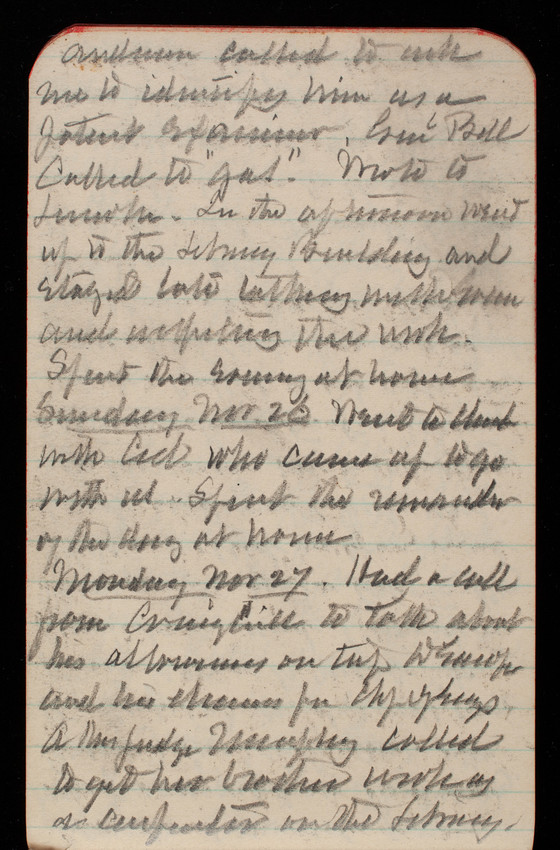 called to ask
me to identify him as a
Patent Examiner. Genl Bell
Called to "gas". Wrote to
Lincoln. In the afternoon went
up to the Library Building and
Stayed late talking with Green
and inspecting the work.
Spent the evening at home
Sunday Nov 26 Went to Church
with Cecil who came up to go
with us. Spent the remainder
of the day at home
Monday Nov 27. Had a call
from Craighill to talk about
his allowances on trip to Europe
and his chances for Chf of Engs.
A Mrs Judge Humphrey called
to get her brother work as
a carpenter on the Library.